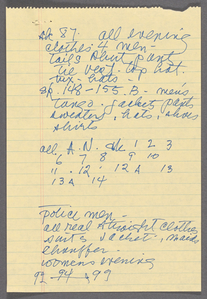 87. all evening
clothes 4 men -
tails shirt pant
tie vest. top hat.
hats - 1
148-155. B- mens
tango. jacket pants
sweaters, hats, shoes
shirts
all. A. N. 1 2 3
6 7 8 9 10
11 - 12 - 12A 13
13A 14
police men -
all real straight clothes
suits jacket, maids
chauffer -
womens evening
92 - 94 - 99